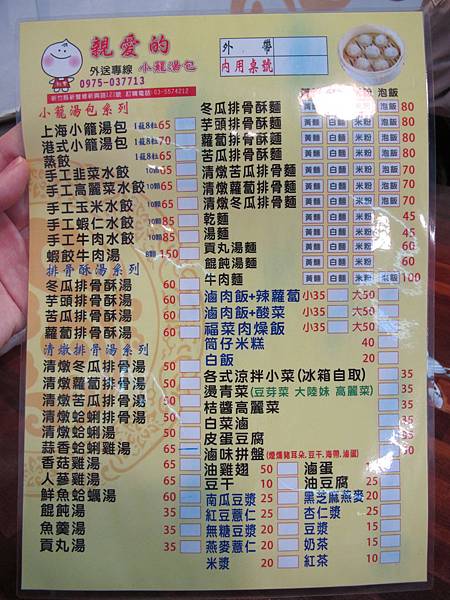 親愛的
小籠湯包
外送專線
0975-037713
外帶
內用桌號
小籠湯包系列
上海小籠湯包 1籠8粒 65
港式小籠湯包 1籠8粒 70
蒸餃 1籠8粒 65
手工韭菜水餃 10顆
手工高麗菜水餃 10顆
手工玉米水餃 10顆
手工蝦仁水餃 10顆 85
手工牛肉水餃 10顆 85
蝦餃牛肉湯 8顆 150
排骨酥湯系列
冬瓜排骨酥湯 60
芋頭排骨酥湯 60
苦瓜排骨酥湯 60
蘿蔔排骨酥湯 60
清燉排骨湯系列
清燉冬瓜排骨湯 60
清燉蘿蔔排骨湯 60
清燉苦瓜排骨湯 60
清燉蛤蜊排骨湯 65
清燉蛤蜊湯 50
蒜香蛤蜊雞湯 65
香菇雞湯 60
人參雞湯 60
鮮魚蛤蠣湯 60
餛飩湯 35
魚羹湯 35
貢丸湯 35
黃麵 白麵 米粉 泡飯
冬瓜排骨酥麵 黃麵 白麵 米粉 泡飯 80
芋頭排骨酥麵 黃麵 白麵 米粉 泡飯 80
蘿蔔排骨酥麵 黃麵 白麵 米粉 泡飯 80
苦瓜排骨酥麵 黃麵 白麵 米粉 泡飯 80
清燉苦瓜排骨麵 黃麵 白麵 米粉 泡飯 70
清燉蘿蔔排骨麵 黃麵 白麵 米粉 泡飯 70
清燉冬瓜排骨麵 黃麵 白麵 米粉 泡飯 70
乾麵 黃麵 白麵 米粉 45
湯麵 黃麵 白麵 米粉 45
貢丸湯麵 黃麵 白麵 米粉 60
餛飩湯麵 黃麵 白麵 米粉 60
牛肉麵 黃麵 白麵 米粉 泡飯 100
滷肉飯+辣蘿蔔 小35 大50
滷肉飯+酸菜 小35 大50
福菜肉燥飯 小35 大50
筒仔米糕 40
白飯 20
各式涼拌小菜(冰箱自取) 35
燙青菜(豆芽菜 大陸妹 高麗菜) 35
桔醬高麗菜 35
白菜滷 35
皮蛋豆腐 35
滷味拼盤(煙燻豬耳朵.豆干.海帶.滷蛋)
油雞翅 50 滷蛋 10
豆干 10 油豆腐 25
南瓜豆漿 25 黑芝麻燕麥 25
紅豆薏仁 25 杏仁漿 25
無糖豆漿 20 豆漿 15
燕麥薏仁 20 奶茶 15
米漿 20 紅茶 10